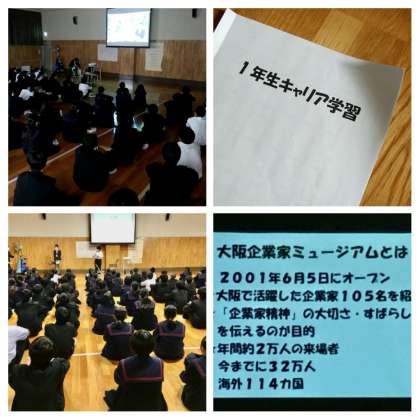 1年生キャリア学習
大阪企業家ミュージアムとは
2001年6月5日にオープン
大阪で活躍した企業家105名を紹
「企業家精神」の大切さ・すばらし
を伝えるのが目的
年間約2万人の来場者
今までに32万人
海外114カ国